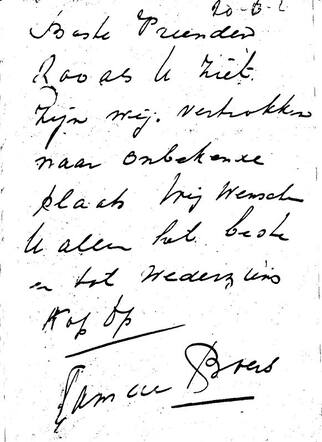 20-8-
Beste Vrienden
Zooals U Ziet
Zijn wij. vertrokken
naar onbekende
plaats Wij Wensch
U allen het beste
en tot wederziens
Kop Op
Broers